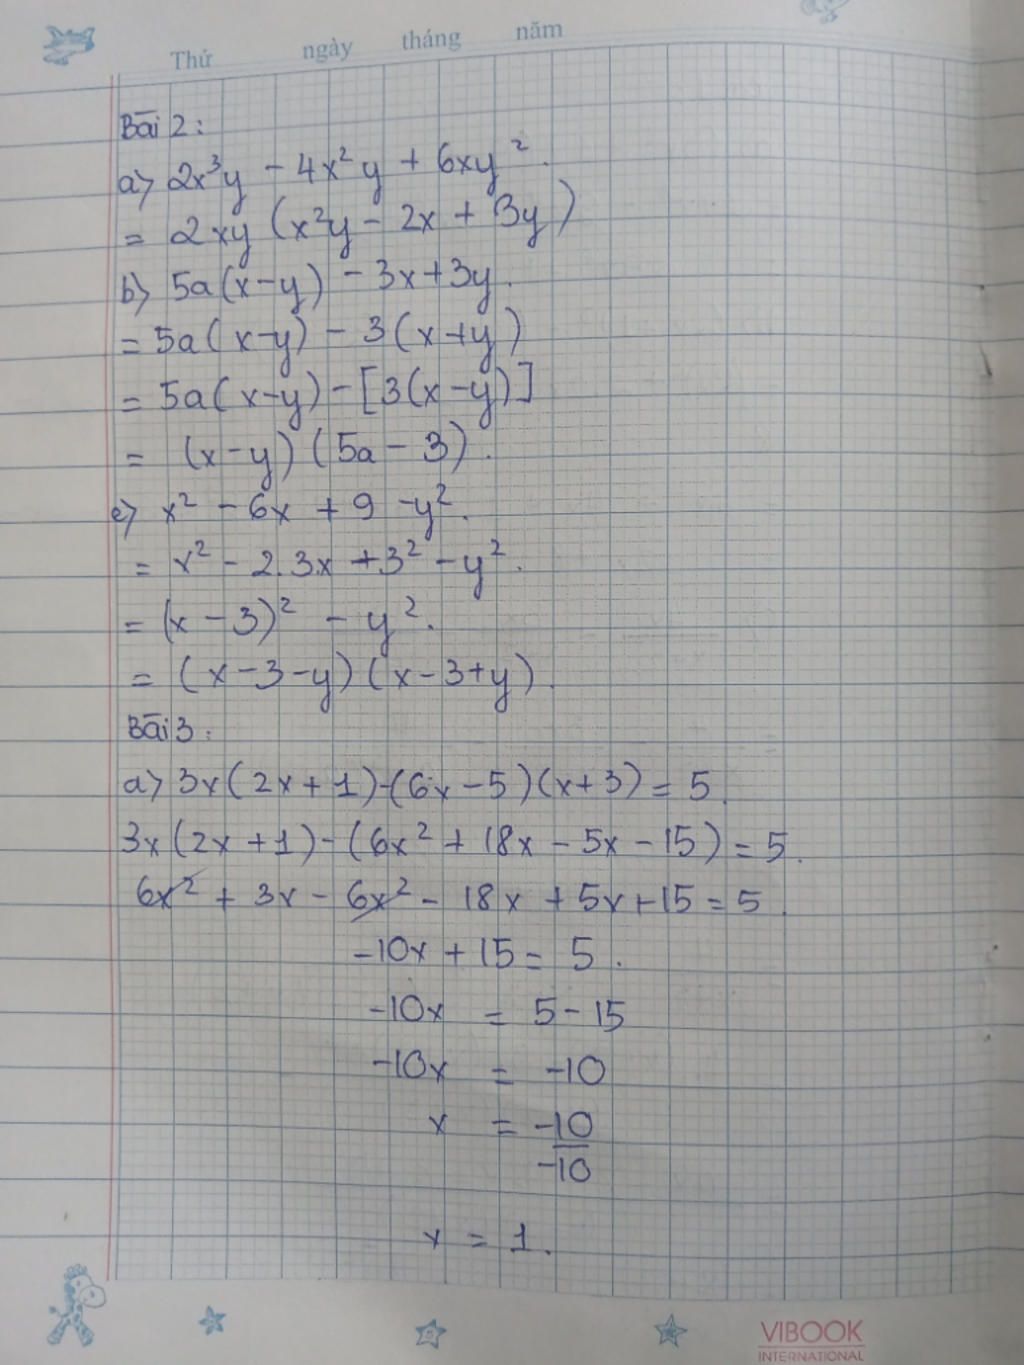 Thứ ngày tháng năm
Bài 2:
a) 2x³y - 4x²y + 6xy².
= 2xy (x²y - 2x + 3y)
b) 5a(x-y) - 3x+3y.
= 5a(x-y) - 3(x+y)
= 5a(x-y) - [3(x-y)]
= (x-y) (5a - 3).
c) x² - 6x + 9 - y².
= x² - 2.3x + 3² - y².
= (x - 3)² - y².
= (x-3-y) (x-3+y).
Bài 3:
a) 3x(2x+1)-(6x-5)(x+3) = 5.
3x(2x+1)-(6x² + 18x - 5x - 15) = 5.
6x² + 3x - 6x² - 18x + 5x+15 = 5.
-10x + 15 = 5.
-10x = 5 - 15
-10x = -10
x = -10
-10
x = 1.
VIBOOK
INTERNATIONAL